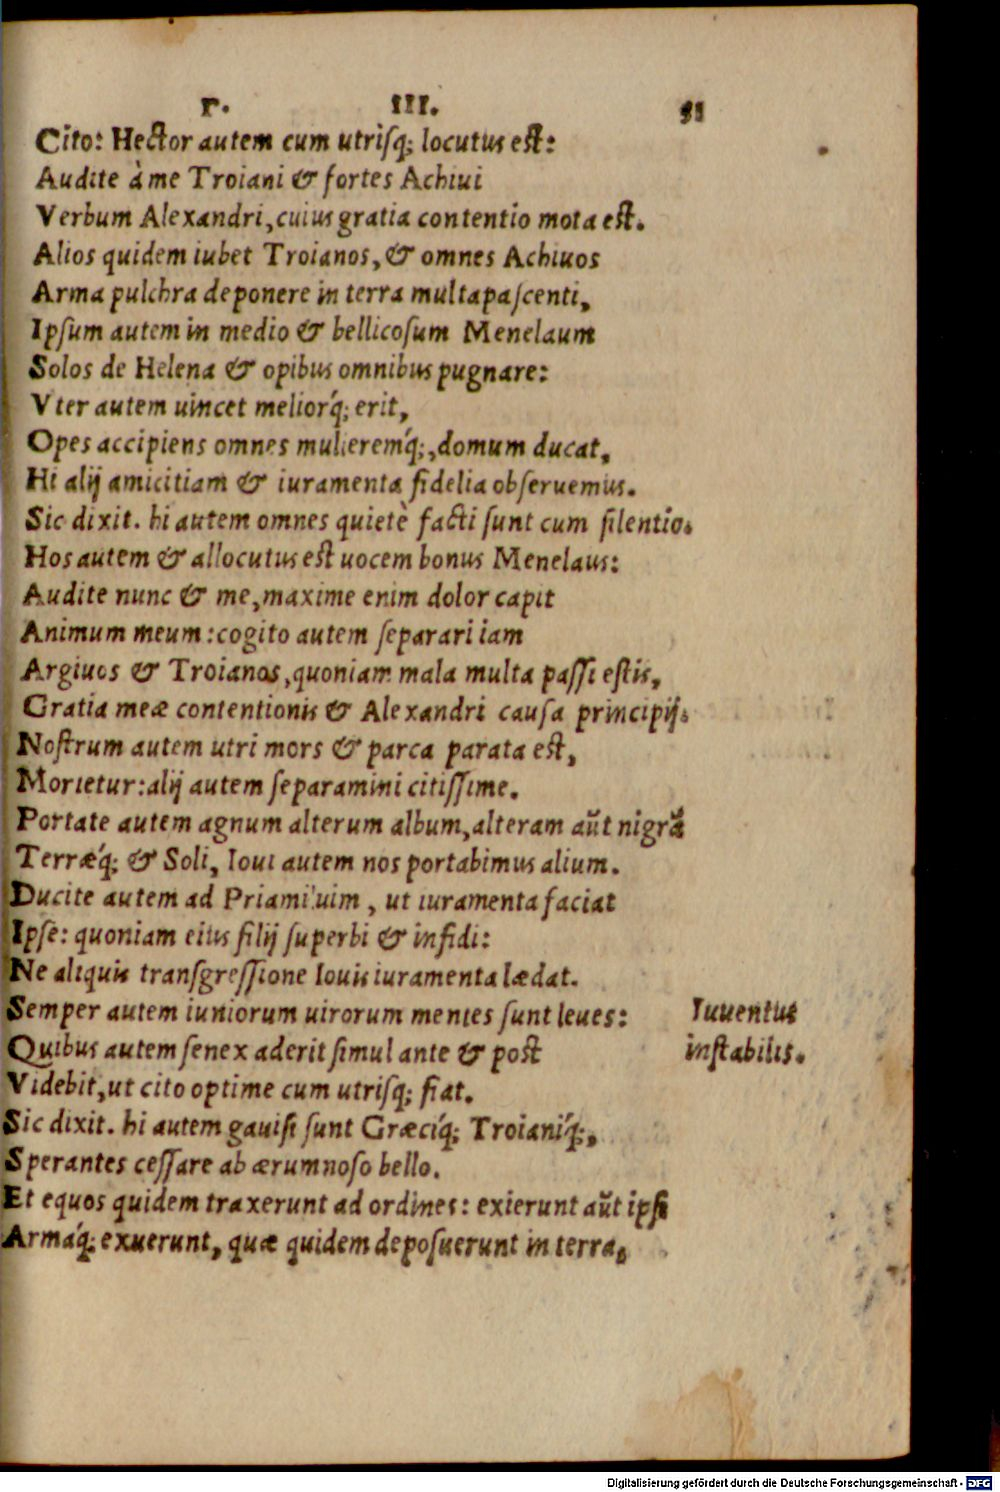 Γ. III. 51
Cito: Hector autem cum utrisq; locutus est:
Audite à me Troiani & fortes Achiui
Verbum Alexandri, cuius gratia contentio mota est.
Alios quidem iubet Troianos, & omnes Achiuos
Arma pulchra deponere in terra multapascenti,
Ipsum autem in medio & bellicosum Menelaum
Solos de Helena & opibus omnibus pugnare:
Vter autem uincet meliorq́; erit,
Opes accipiens omnes mulieremq́;, domum ducat,
Hi alij amicitiam & iuramenta fidelia obseruemus.
Sic dixit. hi autem omnes quietè facti sunt cum silentio.
Hos autem & allocutus est uocem bonus Menelaus:
Audite nunc & me, maxime enim dolor capit
Animum meum: cogito autem separari iam
Argiuos & Troianos, quoniam mala multa passi estis,
Gratia meæ contentionis & Alexandri causa principij.
Nostrum autem utri mors & parca parata est,
Morietur: alij autem separamini citissime.
Portate autem agnum alterum album, alteram aũt nigrã
Terræq́; & Soli, Ioui autem nos portabimus alium.
Ducite autem ad Priami uim, ut iuramenta faciat
Ipse: quoniam eius filij superbi & infidi:
Ne aliquis transgressione Iouis iuramenta lædat.
Semper autem iuniorum uirorum mentes sunt leues: Iuuentus
Quibus autem senex aderit simul ante & post instabilis.
Videbit, ut cito optime cum utrisq; fiat.
Sic dixit. hi autem gauisi sunt Græciq́; Troianiq́;,
Sperantes cessare ab ærumnoso bello.
Et equos quidem traxerunt ad ordines: exierunt aũt ipsi
Armaq́; exuerunt, quæ quidem deposuerunt in terra,
Digitalisierung gefördert durch die Deutsche Forschungsgemeinschaft - DFG